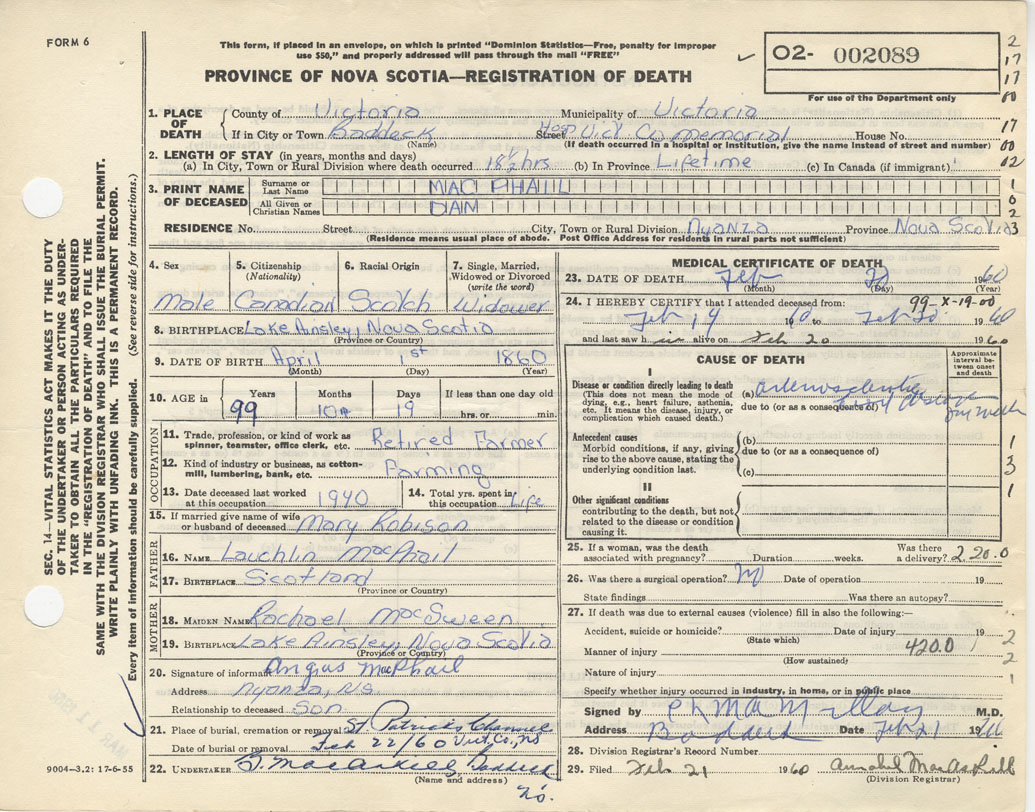 FORM 6
This form, if placed in an envelope, on which is printed "Dominion Statistics—Free, penalty for improper
use $50," and properly addressed will pass through the mail "FREE"
PROVINCE OF NOVA SCOTIA—REGISTRATION OF DEATH
02- 002089
For use of the Department only
2
17
17
00
17
00
02
1
0
2
3
SEC. 14—VITAL STATISTICS ACT MAKES IT THE DUTY
OF THE UNDERTAKER OR PERSON ACTING AS UNDER-
TAKER TO OBTAIN ALL THE PARTICULARS REQUIRED
IN THE "REGISTRATION OF DEATH" AND TO FILE THE
SAME WITH THE DIVISION REGISTRAR WHO SHALL ISSUE THE BURIAL PERMIT.
WRITE PLAINLY WITH UNFADING INK. THIS IS A PERMANENT RECORD.
Every item of information should be carefully supplied. (See reverse side for instructions.)
1. PLACE OF DEATH
County of Victoria Municipality of Victoria
If in City or Town Baddeck Street Hosp Vict Co memorial House No.
(Name) (If death occurred in a hospital or institution, give the name instead of street and number)
2. LENGTH OF STAY (in years, months and days)
(a) In City, Town or Rural Division where death occurred 18½ hrs (b) In Province Lifetime (c) In Canada (if immigrant)
3. PRINT NAME OF DECEASED
Surname or Last Name MAC PHAIL
All Given or Christian Names DAN
RESIDENCE No. Street City, Town or Rural Division Nyanza Province Nova Scotia
(Residence means usual place of abode. Post Office Address for residents in rural parts not sufficient)
4. Sex
5. Citizenship (Nationality)
6. Racial Origin
7. Single, Married, Widowed or Divorced (write the word)
Male Canadian Scotch Widower
8. BIRTHPLACE Lake Ainsley, Nova Scotia
(Province or Country)
9. DATE OF BIRTH April 1st 1860
(Month) (Day) (Year)
10. AGE in Years Months Days If less than one day old
99 10 19 hrs. or min.
OCCUPATION
11. Trade, profession, or kind of work as spinner, teamster, office clerk, etc. Retired Farmer
12. Kind of industry or business, as cotton-mill, lumbering, bank, etc. Farming
13. Date deceased last worked at this occupation 1940
14. Total yrs. spent in this occupation Life
15. If married give name of wife or husband of deceased Mary Robison
FATHER
16. NAME Lauchlin MacPhail
17. BIRTHPLACE Scotland
(Province or Country)
MOTHER
18. MAIDEN NAME Rachael MacSween
19. BIRTHPLACE Lake Ainsley, Nova Scotia
(Province or Country)
20. Signature of informant Angus MacPhail
Address Nyanza, NS
Relationship to deceased Son
21. Place of burial, cremation or removal St Patricks Channel
Date of burial or removal Feb 22/60 Vict Co., NS
22. UNDERTAKER Baddeck
(Name and address)
9004—3.2: 17-6-55
MEDICAL CERTIFICATE OF DEATH
23. DATE OF DEATH Feb 20 1960
(Month) (Day) (Year)
24. I HEREBY CERTIFY that I attended deceased from: 99-X-19-00
Feb 19 1960 to Feb 20 1960
and last saw him alive on Feb 20 1960
CAUSE OF DEATH
Approximate interval between onset and death
I
Disease or condition directly leading to death
(This does not mean the mode of dying, e.g., heart failure, asthenia, etc. It means the disease, injury, or complication which caused death.)
(a) arteriosclerotic
due to (or as a consequence of) heart disease
Antecedent causes
Morbid conditions, if any, giving rise to the above cause, stating the underlying condition last.
(b)
due to (or as a consequence of)
(c)
1
3
1
II
Other significant conditions contributing to the death, but not related to the disease or condition causing it.
25. If a woman, was the death associated with pregnancy? Duration weeks. Was there a delivery? 2 20.0
26. Was there a surgical operation? No Date of operation 19
State findings Was there an autopsy?
27. If death was due to external causes (violence) fill in also the following:—
Accident, suicide or homicide? Date of injury 19
(State which)
Manner of injury 420.0
(How sustained)
Nature of injury
2
2
1
Specify whether injury occurred in industry, in home, or in public place
Signed by M.D.
Address Baddeck Date Feb 21 19
28. Division Registrar's Record Number
29. Filed Feb 21 1960
(Division Registrar)